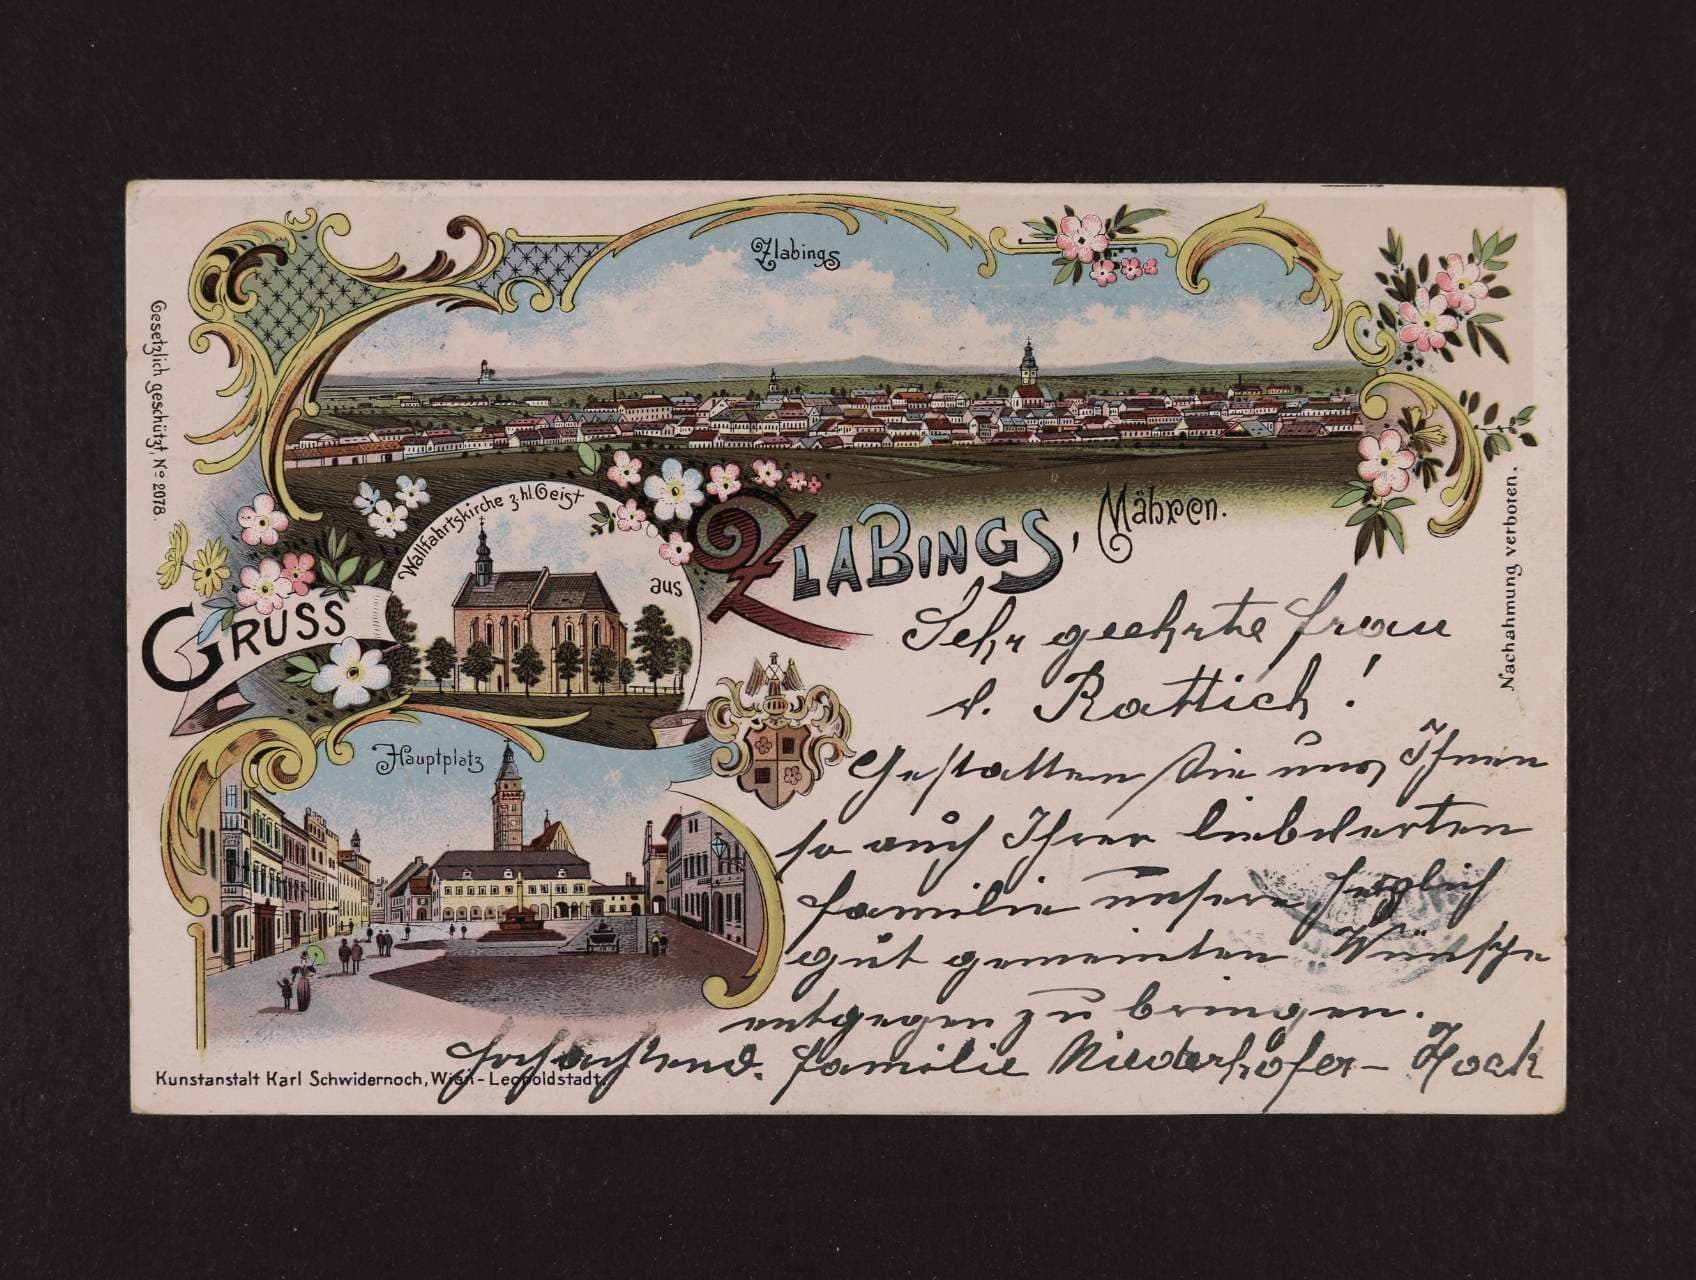 Zlabings
Gesetzlich geschützt, No 2078.
Wallfahrtskirche z hl. Geist
GRUSS
aus
ZLABINGS, Mähren.
Nachahmung verboten.
Hauptplatz
Sehr geehrte Frau
v. Rattich!
Gestatten Sie uns, Ihnen
so auch Ihrer liebwerten
Familie unsere herzlich
gut gemeinten Wünsche
entgegen zu bringen.
Hochachtend. Familie Niederhofer - Hock
Kunstanstalt Karl Schwidernoch, Wien-Leopoldstadt.